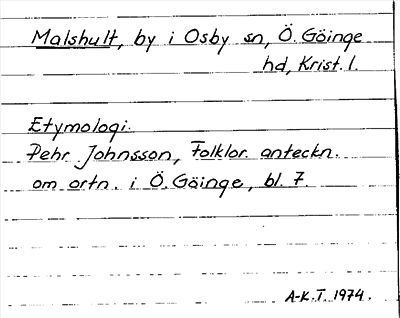 Malshult, by i Osby sn, Ö. Göinge
hd, Krist. l.
Etymologi.
Pehr Johnsson, Folklor. anteckn.
om ortn. i Ö. Göinge, bl. 7.
A-K.T. 1974.